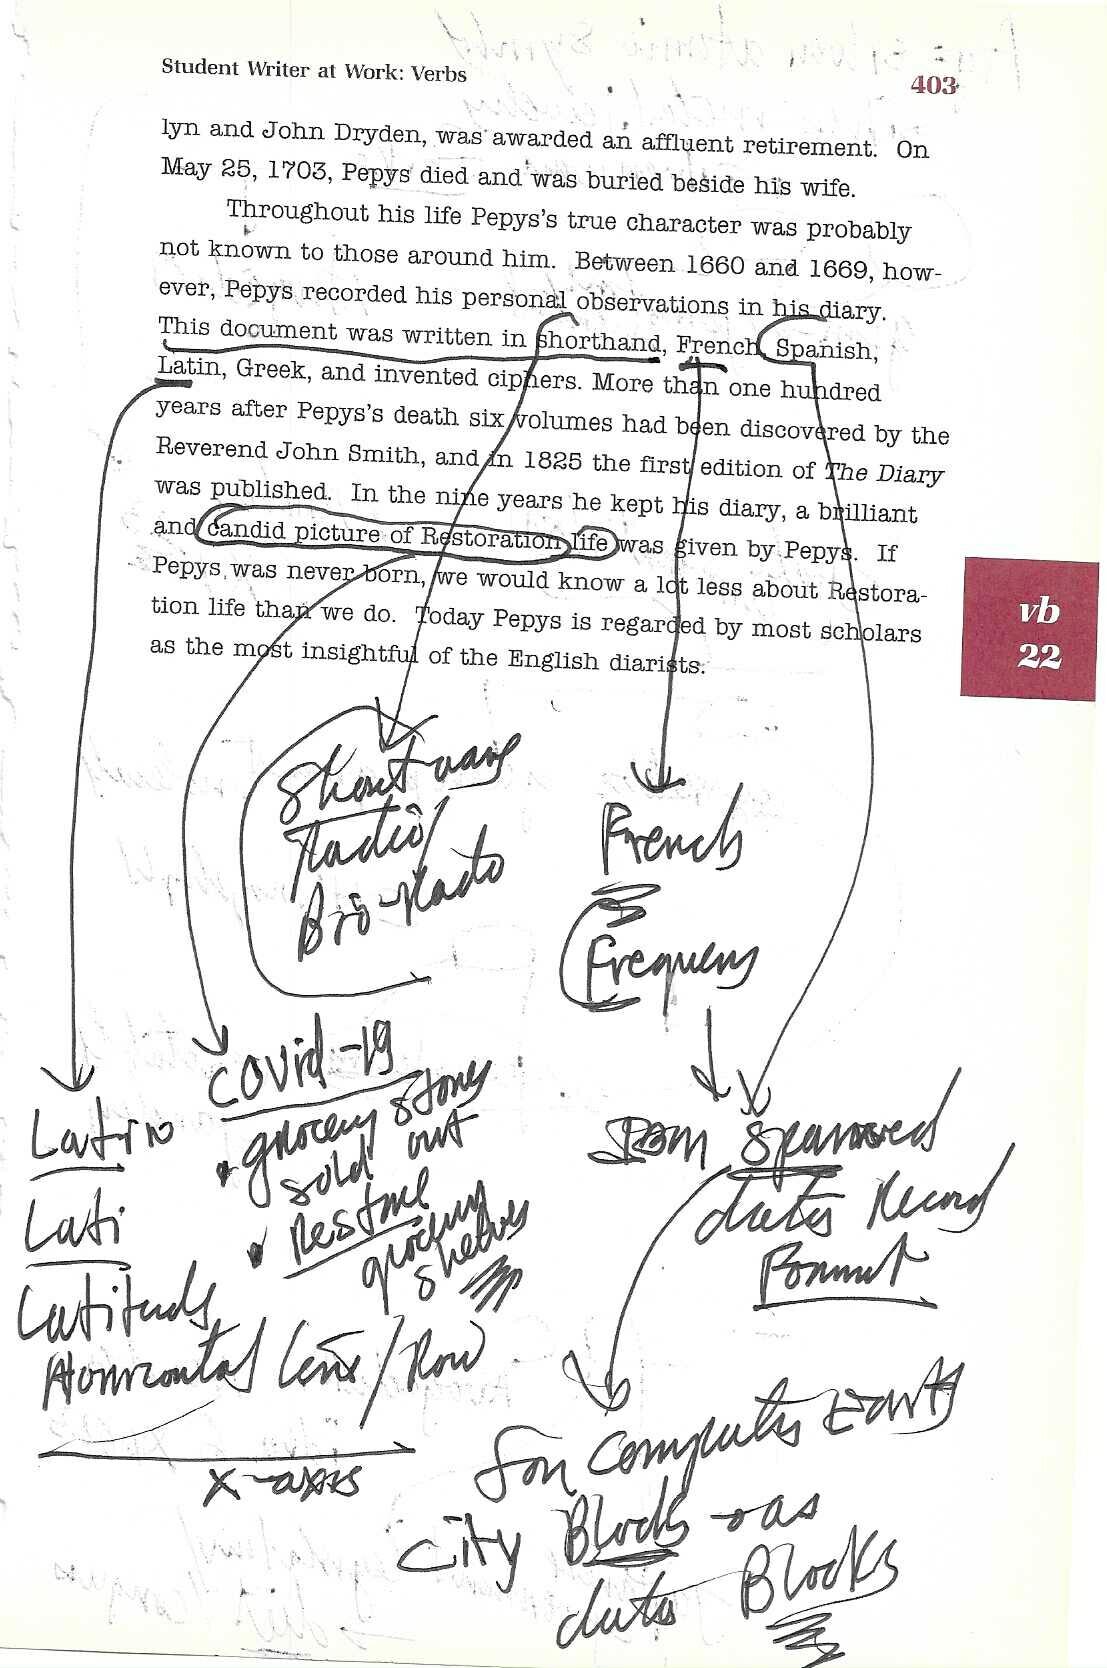 Student Writer at Work: Verbs
403
lyn and John Dryden, was awarded an affluent retirement. On
May 25, 1703, Pepys died and was buried beside his wife.
Throughout his life Pepys's true character was probably
not known to those around him. Between 1660 and 1669, how-
ever, Pepys recorded his personal observations in his diary.
This document was written in shorthand, French, Spanish,
Latin, Greek, and invented ciphers. More than one hundred
years after Pepys's death six volumes had been discovered by the
Reverend John Smith, and in 1825 the first edition of The Diary
was published. In the nine years he kept his diary, a brilliant
and candid picture of Restoration life was given by Pepys. If
Pepys was never born, we would know a lot less about Restora-
tion life than we do. Today Pepys is regarded by most scholars
as the most insightful of the English diarists.
vb
22
Short wave
Radio/
Bio-Radio
French
Frequens
Covid-19
grocery stores
sold out
Restore
grocery
shelves
Latin
Lati
Latitude
Horizontal line/Row
X-axis
IBM Spanned
data Record
Format
for computer Earth
City Blocks as
data Blocks